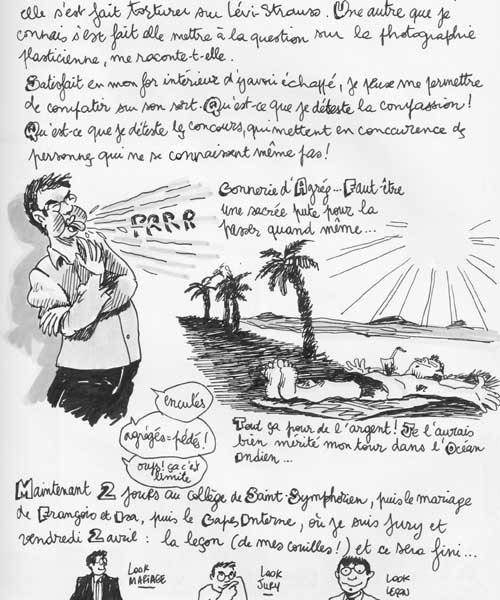 elle s'est fait torturer sur Lévi-Strauss. Une autre que je
connais s'est fait elle mettre à la question sur la photographie
plasticienne, me raconte-t-elle.
Satisfait en mon for intérieur d'y avoir échappé, je peux me permettre
de compatir sur son sort. Qu'est-ce que je déteste la compassion !
Qu'est-ce que je déteste les concours, qui mettent en concurrence des
personnes qui ne se connaissent même pas !
PRRR
Connerie d'Agrég... Faut-être
une sacrée pute pour la
passer quand même...
enculés
agrégés=pédés !
oups! ça c'est
limite
Tout ça pour de l'argent ! Je l'aurais
bien mérité mon tour dans l'Océan
Indien...
Maintenant 2 jours au collège de Saint-Symphorien, puis le mariage
de François et Isa, puis le Capes Interne, où je suis jury et
vendredi 2 avril : la leçon (de mes couilles !) et ce sera fini...
LOOK
MARIAGE
LOOK
JURY
LOOK
LEÇON